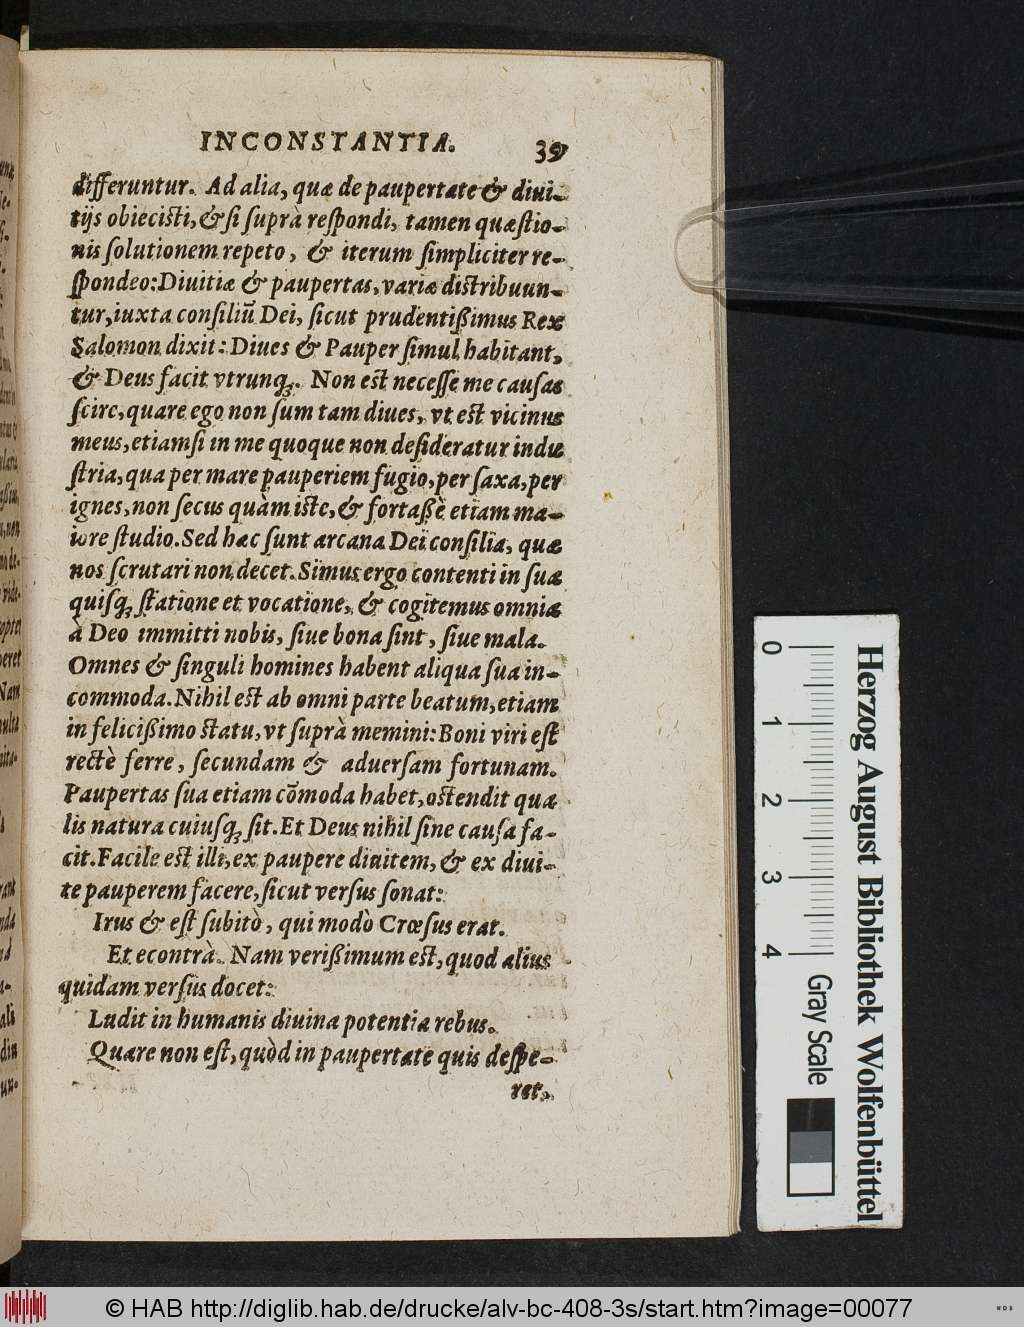 INCONSTANTIA. 39
differuntur. Ad alia, quæ de paupertate & diui-
tijs obiecisti, & si suprà respondi, tamen quæstio-
nis solutionem repeto, & iterum simpliciter re-
spondeo: Diuitiæ & paupertas, variæ distribuun-
tur, iuxta consiliũ Dei, sicut prudentißimus Rex
Salomon dixit: Diues & Pauper simul habitant,
& Deus facit vtrunq;. Non est necesse me causas
scire, quare ego non sum tam diues, vt est vicinus
meus, etiamsi in me quoque non desideratur indu
stria, qua per mare pauperiem fugio, per saxa, per
ignes, non secus quàm iste, & fortaßè etiam ma-
iore studio. Sed hæc sunt arcana Dei consilia, quæ
nos scrutari non decet. Simus ergo contenti in sua
quisq; statione et vocatione, & cogitemus omnia
à Deo immitti nobis, siue bona sint, siue mala.
Omnes & singuli homines habent aliqua sua in-
commoda. Nihil est ab omni parte beatum, etiam
in felicißimo statu, vt suprà memini: Boni viri est
rectè ferre, secundam & aduersam fortunam.
Paupertas sua etiam cõmoda habet, ostendit qua
lis natura cuiusq; sit. Et Deus nihil sine causa fa-
cit. Facile est illi, ex paupere diuitem, & ex diui-
te pauperem facere, sicut versus sonat:
Irus & est subitò, qui modò Crœsus erat.
Et econtrà. Nam verißimum est, quod alius
quidam versus docet:
Ludit in humanis diuina potentia rebus.
Quare non est, quòd in paupertate quis despe-
ret,
0 1 2 3 4
Gray Scale
Herzog August Bibliothek Wolfenbüttel
© HAB http://diglib.hab.de/drucke/alv-bc-408-3s/start.htm?image=00077